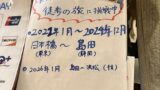 徒歩の旅に挑戦中
①2021年1月〜2024年12月
日本橋〜島田
(東京) (静岡)
②2026年1月 島田〜浜松(予)